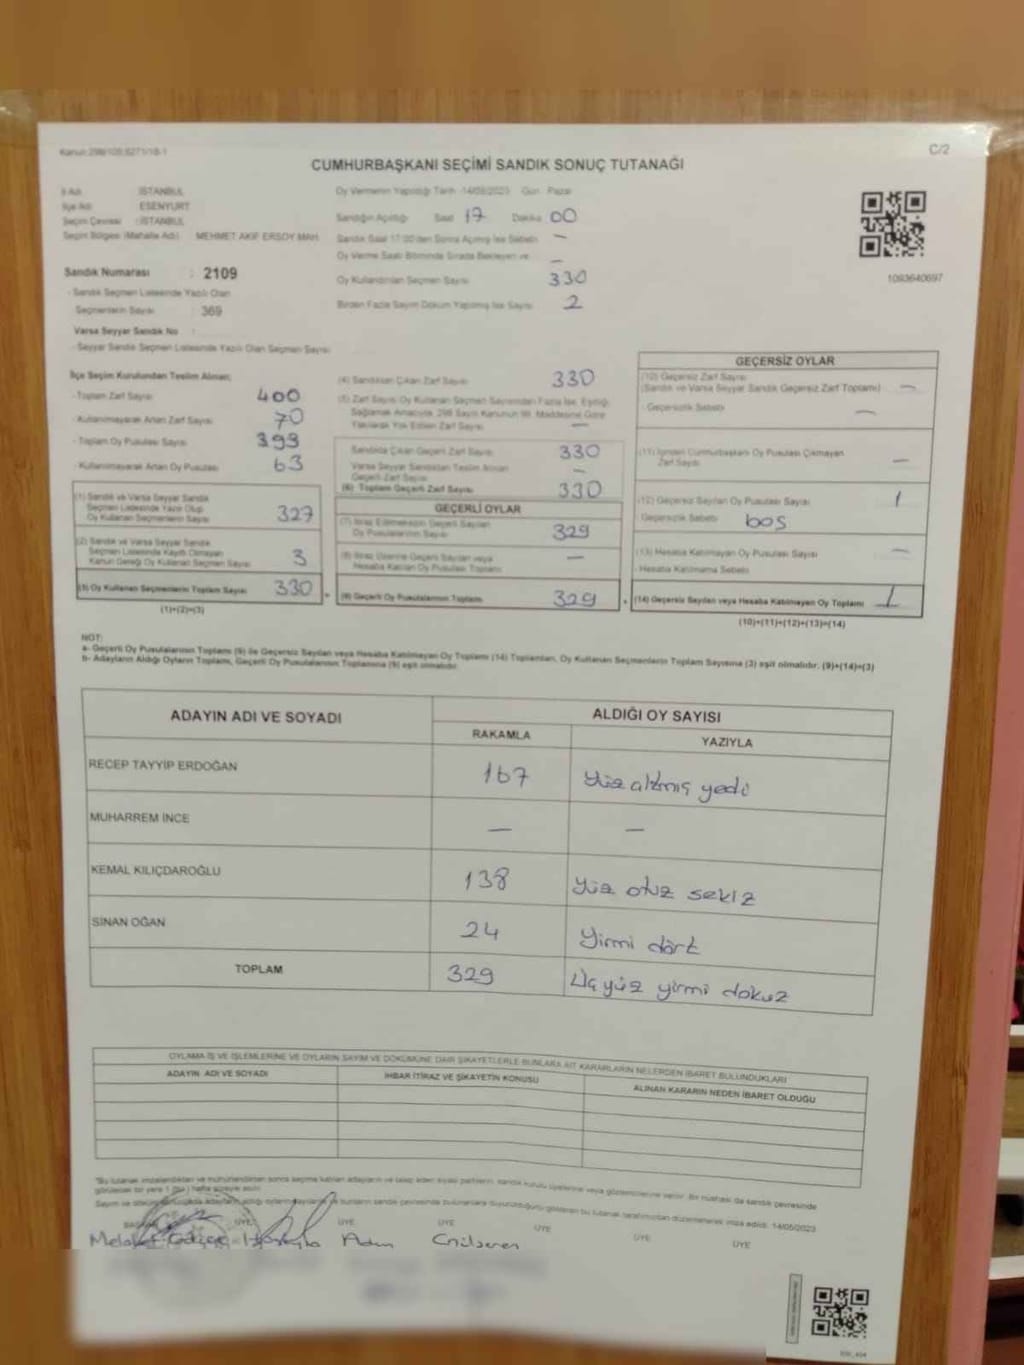 Kanun:298/105,6271/18-1
C/2
CUMHURBAŞKANI SEÇİMİ SANDIK SONUÇ TUTANAĞI
İl Adı : İSTANBUL
İlçe Adı : ESENYURT
Seçim Çevresi : İSTANBUL
Seçim Bölgesi (Mahalle Adı) : MEHMET AKİF ERSOY MAH.
Oy Vermenin Yapıldığı Tarih :14/05/2023 Gün : Pazar
Sandığın Açıldığı Saat 17 Dakika 00
Sandık Saat 17:00'den Sonra Açılmış İse Sebebi —
Oy Verme Saati Bitiminde Sırada Bekleyen ve —
Oy Kullandırılan Seçmen Sayısı 330
Birden Fazla Sayım Döküm Yapılmış İse Sayısı 2
1093640697
Sandık Numarası : 2109
- Sandık Seçmen Listesinde Yazılı Olan
Seçmenlerin Sayısı : 369
Varsa Seyyar Sandık No :
- Seyyar Sandık Seçmen Listesinde Yazılı Olan Seçmen Sayısı
İlçe Seçim Kurulundan Teslim Alınan;
- Toplam Zarf Sayısı 400
- Kullanılmayarak Artan Zarf Sayısı 70
- Toplam Oy Pusulası Sayısı 393
- Kullanılmayarak Artan Oy Pusulası 63
(1) Sandık ve Varsa Seyyar Sandık
Seçmen Listesinde Yazılı Olup
Oy Kullanan Seçmenlerin Sayısı 327
(2) Sandık ve Varsa Seyyar Sandık
Seçmen Listesinde Kayıtlı Olmayan
Kanun Gereği Oy Kullanan Seçmen Sayısı 3
(3) Oy Kullanan Seçmenlerin Toplam Sayısı 330
(1)+(2)=(3)
(4) Sandıktan Çıkan Zarf Sayısı 330
(5) Zarf Sayısı Oy Kullanan Seçmen Sayısından Fazla İse, Eşitliği
Sağlamak Amacıyla, 298 Sayılı Kanunun 98. Maddesine Göre
Yakılarak Yok Edilen Zarf Sayısı —
Sandıkta Çıkan Geçerli Zarf Sayısı 330
Varsa Seyyar Sandıktan Teslim Alınan
Geçerli Zarf Sayısı —
(6) Toplam Geçerli Zarf Sayısı 330
GEÇERLİ OYLAR
(7) İtiraz Edilmeksizin Geçerli Sayılan
Oy Pusulalarının Sayısı 329
(8) İtiraz Üzerine Geçerli Sayılan veya
Hesaba Katılan Oy Pusulası Toplamı —
(9) Geçerli Oy Pusulalarının Toplamı 329
GEÇERSİZ OYLAR
(10) Geçersiz Zarf Sayısı
(Sandık ve Varsa Seyyar Sandık Geçersiz Zarf Toplamı) —
- Geçersizlik Sebebi —
(11) İçinden Cumhurbaşkanı Oy Pusulası Çıkmayan
Zarf Sayısı —
(12) Geçersiz Sayılan Oy Pusulası Sayısı 1
- Geçersizlik Sebebi boş
(13) Hesaba Katılmayan Oy Pusulası Sayısı —
- Hesaba Katılmama Sebebi
(14) Geçersiz Sayılan veya Hesaba Katılmayan Oy Toplamı 1
(10)+(11)+(12)+(13)=(14)
NOT:
a- Geçerli Oy Pusulalarının Toplamı (9) ile Geçersiz Sayılan veya Hesaba Katılmayan Oy Toplamı (14) Toplamları, Oy Kullanan Seçmenlerin Toplam Sayısına (3) eşit olmalıdır. (9)+(14)=(3)
b- Adayların Aldığı Oyların Toplamı, Geçerli Oy Pusulalarının Toplamına (9) eşit olmalıdır.
ADAYIN ADI VE SOYADI
ALDIĞI OY SAYISI
RAKAMLA YAZIYLA
RECEP TAYYİP ERDOĞAN 167 yüz altmış yedi
MUHARREM İNCE — —
KEMAL KILIÇDAROĞLU 138 yüz otuz sekiz
SİNAN OĞAN 24 yirmi dört
TOPLAM 329 Üçyüz yirmi dokuz
OYLAMA İŞ VE İŞLEMLERİNE VE OYLARIN SAYIM VE DÖKÜMÜNE DAİR ŞİKAYETLERLE BUNLARA AİT KARARLARIN NELERDEN İBARET BULUNDUKLARI
ADAYIN ADI VE SOYADI İHBAR İTİRAZ VE ŞİKAYETİN KONUSU ALINAN KARARIN NEDEN İBARET OLDUĞU
BAŞKAN ÜYE ÜYE ÜYE ÜYE ÜYE ÜYE